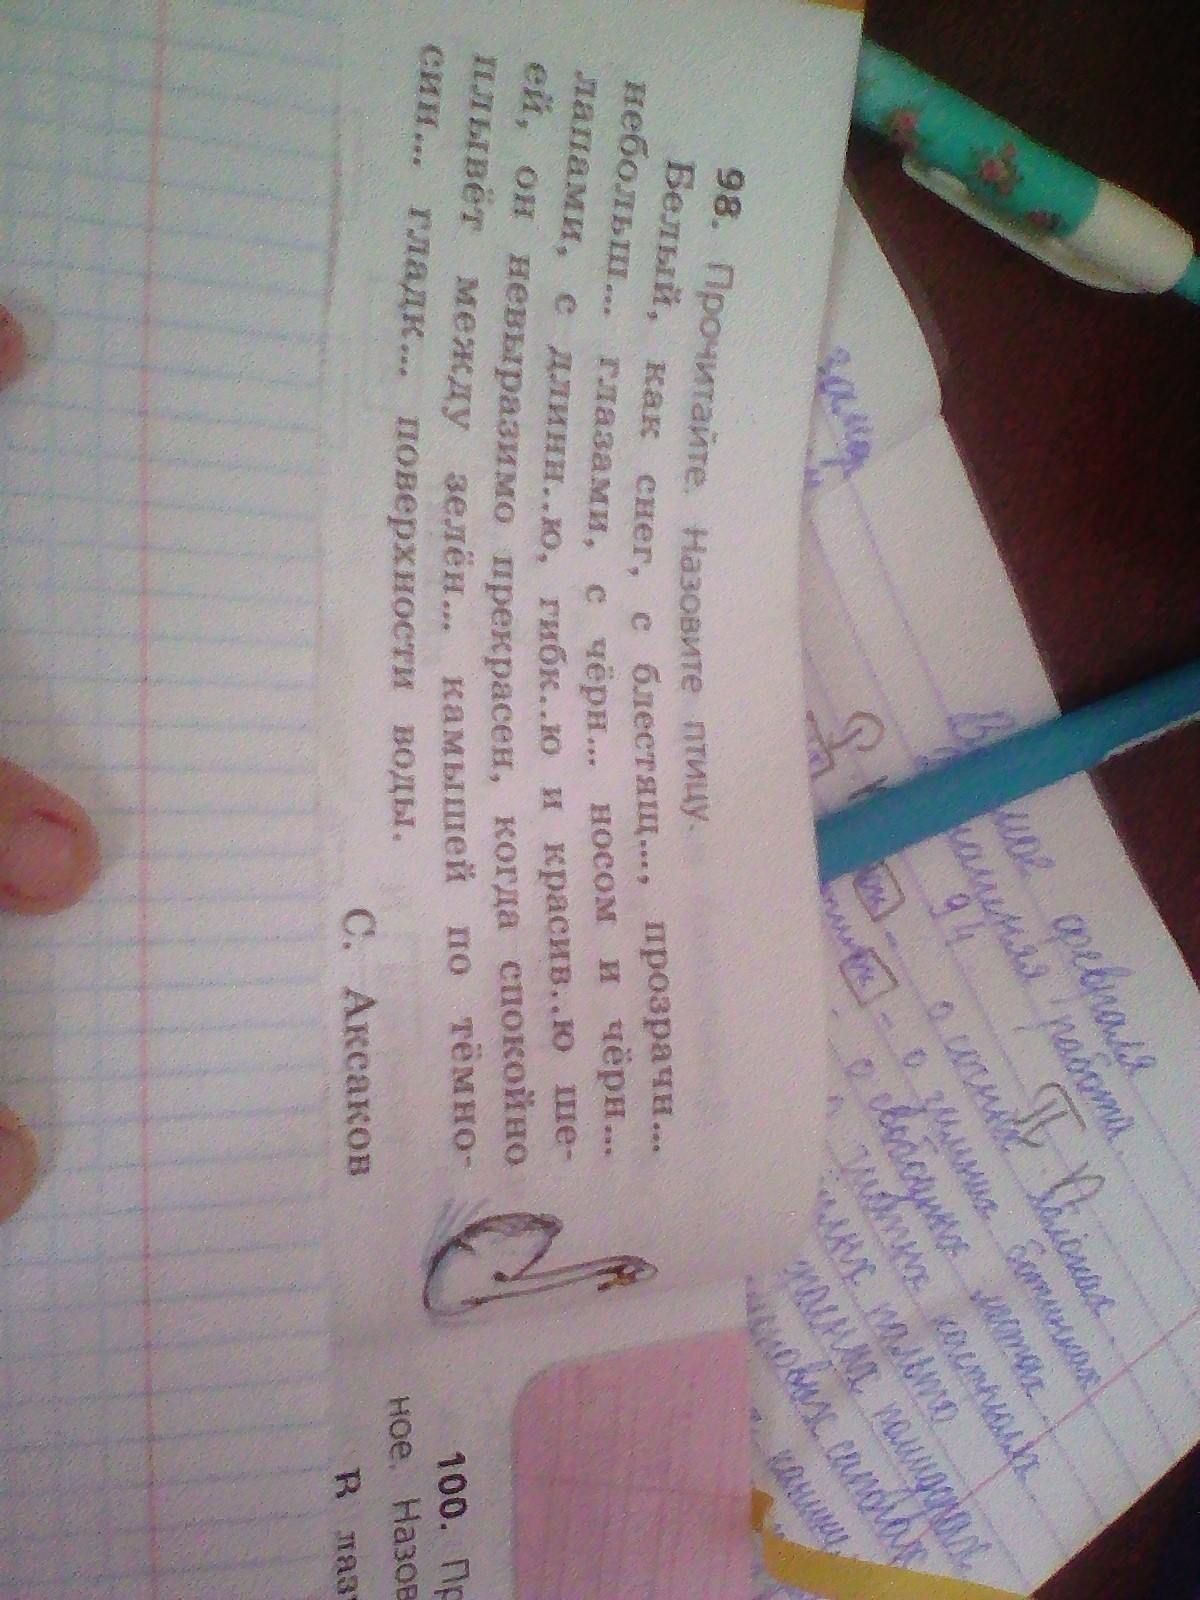 98. Прочитайте. Назовите птицу.
Белый, как снег, с блестящ..., прозрачн...
небольш... глазами, с чёрн... носом и чёрн...
лапами, с длинн..ю, гибк..ю и красив..ю ше-
ей, он невыразимо прекрасен, когда спокойно
плывёт между зелён... камышей по тёмно-
син... гладк... поверхности воды.
С. Аксаков
100. Пр
ное. Назов
В лаз
февраля
работа.
94.
П.
о зимних ботинках
о свободных местах
пальто